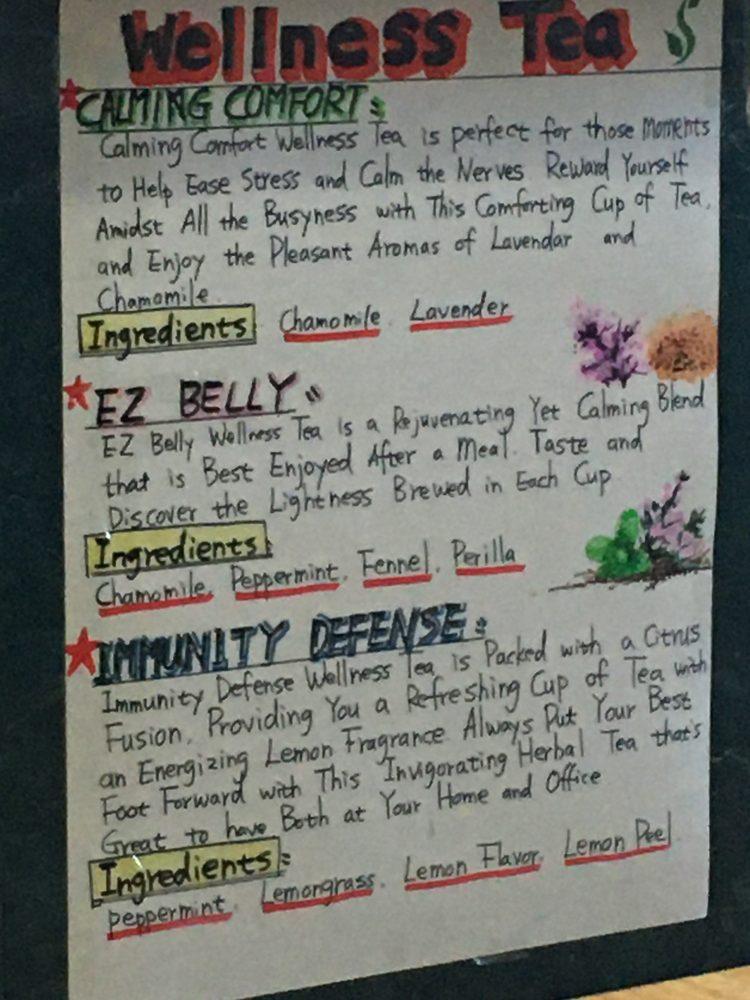 Wellness Tea
CALMING COMFORT:
Calming Comfort Wellness Tea is perfect for those Moments
to Help Ease Stress and Calm the Nerves Reward Yourself
Amidst All the Busyness with This Comforting Cup of Tea,
and Enjoy the Pleasant Aromas of Lavendar and
Chamomile.
Ingredients Chamomile. Lavender
EZ BELLY:
EZ Belly Wellness Tea is a Rejuvenating Yet Calming Blend
that is Best Enjoyed After a Meal. Taste and
Discover the Lightness Brewed in Each Cup
Ingredients:
Chamomile, Peppermint. Fennel. Perilla
IMMUNITY DEFENSE:
Immunity Defense Wellness Tea is Packed with a Citrus
Fusion, Providing You a Refreshing Cup of Tea with
an Energizing Lemon Fragrance Always Put Your Best
Foot Forward with This Invigorating Herbal Tea that's
Great to have Both at Your Home and Office
Ingredients:
peppermint. Lemongrass. Lemon Flavor. Lemon Peel